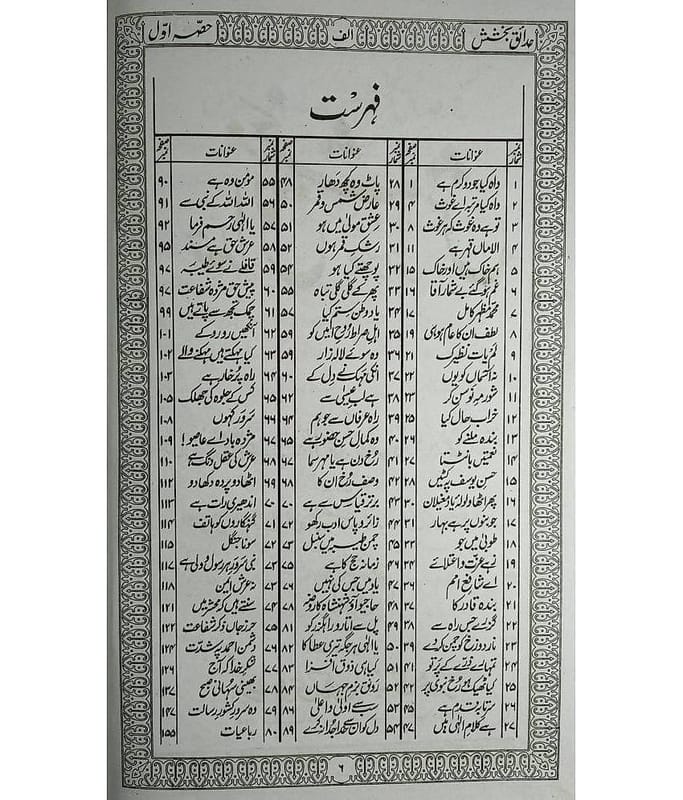 حدائق بخشش
الف
حصّہ اوّل
فہرست
نمبر شمار عنوانات صفحہ نمبر شمار عنوانات صفحہ نمبر شمار عنوانات صفحہ نمبر
۱ واہ کیا جود و کرم ہے ۱ ۲۸ پاٹ وہ کچھ دھار ۴۸ ۵۵ مومن وہ ہے ۹۰
۲ واہ کیا مرتبہ اے غوث ۴ ۲۹ عارض شمس و قمر ۵۰ ۵۶ اللہ اللہ کے نبی سے ۹۱
۳ تو ہے وہ غوث کہ ہر غوث ۸ ۳۰ عشق مولیٰ میں ہو ۵۱ ۵۷ یا الٰہی رحم فرما ۹۲
۴ الاماں قہر ہے ۱۱ ۳۱ رشک قمر ہوں ۵۲ ۵۸ عرش حق ہے مسند ۹۵
۵ ہم خاک ہیں اور خاک ۱۵ ۳۲ پوچھتے کیا ہو ۵۴ ۵۹ قافلے نے سوئے طیبہ ۹۷
۶ غم ہو گئے بے شمار آقا ۱۶ ۳۳ پھر کے گلی گلی تباہ ۵۵ ۶۰ پیش حق مژدہ شفاعت ۹۷
۷ محمد مظہر کامل ۱۷ ۳۴ یاد وطن ستم کیا ۵۷ ۶۱ چمک تجھ سے پاتے ہیں ۹۹
۸ لطف ان کا عام ہو ہی ۱۹ ۳۵ اہل صراط روح امیں کو ۵۹ ۶۲ آنکھیں رو رو کے ۱۰۱
۹ لم یات نظیرک ۲۱ ۳۶ وہ سوئے لالہ زار ۵۹ ۶۳ کیا مہکتے ہیں مہکنے والے ۱۰۲
۱۰ نہ آسماں کو یوں ۲۲ ۳۷ انکی مہک نے دل کے ۶۰ ۶۴ راہ پُر خار ہے ۱۰۳
۱۱ شور مہ نو سن کر ۲۳ ۳۸ ہے لب عیسیٰ سے ۶۲ ۶۵ کس کے جلوہ کی جھلک ۱۰۵
۱۲ خراب حال کیا ۲۵ ۳۹ راہ عرفاں سے جو ہم ۶۴ ۶۶ سَروَر کہوں ۱۰۸
۱۳ بندہ ملنے کو ۲۶ ۴۰ وہ کمال حسن حضور ہے ۶۵ ۶۷ مژدہ باد اے عاصیو! ۱۰۹
۱۴ نعمتیں بانٹتا ۲۷ ۴۱ رخ دن ہے یا مہر سما ۶۷ ۶۸ عرش کی عقل دنگ ہے ۱۱۰
۱۵ حسن یوسف پہ کٹیں ۲۹ ۴۲ وصف رخ ان کا ۶۸ ۶۹ اٹھا دو پردہ دکھا دو ۱۱۲
۱۶ پھر اٹھا ولولہ یاد مغیلان ۳۰ ۴۳ برتر قیاس سے ہے ۷۰ ۷۰ اندھیری رات ہے ۱۱۳
۱۷ جوبنوں پر ہے بہار ۳۱ ۴۴ زائرو پاس ادب رکھو ۷۱ ۷۱ گنہگاروں کو ہاتف ۱۱۴
۱۸ طوبیٰ میں جو ۳۲ ۴۵ چمن طیبہ میں سنبل ۷۲ ۷۲ سونا جنگل ۱۱۵
۱۹ زہے عزت و اعتلائے ۳۴ ۴۶ زمانہ حج کا ہے ۷۵ ۷۳ نبی سرور ہر رسول و ولی ہے ۱۱۷
۲۰ اے شافع امم ۳۶ ۴۷ یاد میں جس کی نہیں ۷۶ ۷۳ نہ عرش ایمن ۱۱۸
۲۱ بندہ قادر کا ۳۷ ۴۸ حاجیو آؤ شہنشاہ کا روضہ ۷۸ ۷۴ سنتے ہیں کہ محشر میں ۱۲۱
۲۲ گزرے جس راہ سے ۳۸ ۴۹ پل سے اتارو راہ گزر کو ۸۱ ۷۵ حرز جاں ذکر شفاعت ۱۲۲
۲۳ نار دوزخ کو چمن کر دے ۳۹ ۵۰ یا الٰہی ہر جگہ تیری عطا کا ۸۲ ۷۶ دشمن احمد پہ شدت ۱۲۴
۲۴ تمہارے ذرے کے پرتو ۴۱ ۵۱ کیا ہی ذوق افزا ۸۳ ۷۷ شکر خدا کہ آج ۱۲۶
۲۵ کیا ٹھیک ہو رخ نبوی پر ۴۲ ۵۲ رونق بزم جہاں ۸۴ ۷۸ بھینی سہانی صبح ۱۳۷
۲۶ سرتابقدم ہے ۴۵ ۵۳ سب سے اولیٰ و اعلیٰ ۸۶ ۷۹ وہ سرور کشور رسالت ۱۴۷
۲۷ ہے کلام الٰہی میں ۴۷ ۵۴ دل کو ان سے خدا جدا نہ کرے ۸۹ ۸۰ رباعیات ۱۵۵
۶